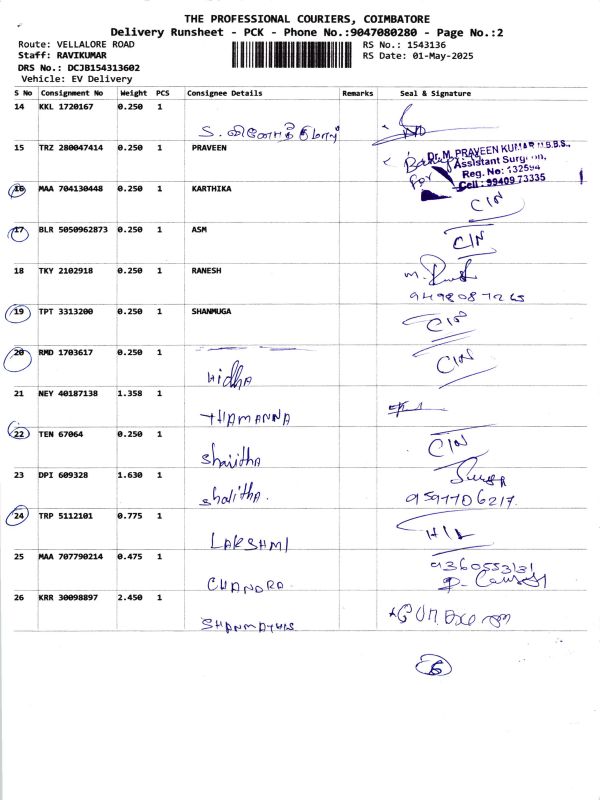 THE PROFESSIONAL COURIERS, COIMBATORE
Delivery Runsheet - PCK - Phone No.:9047080280 - Page No.:2
Route: VELLALORE ROAD
RS No.: 1543136
Staff: RAVIKUMAR
RS Date: 01-May-2025
DRS No.: DCJB154313602
Vehicle: EV Delivery
S No Consignment No Weight PCS Consignee Details Remarks Seal & Signature
14 KKL 1720167 0.250 1
S. வினோத்குமார்
15 TRZ 280047414 0.250 1 PRAVEEN
Dr. M. PRAVEEN KUMAR M.B.B.S.,
Assistant Surgeon,
Reg. No: 132594
Cell : 99409 73335
For
16 MAA 704130448 0.250 1 KARTHIKA
CIN
17 BLR 5050962873 0.250 1 ASM
CIN
18 TKY 2102918 0.250 1 RANESH
19 TPT 3313200 0.250 1 SHANMUGA
CIN
20 RMD 1703617 0.250 1
Hidha
CIN
21 NEY 40187138 1.358 1
THAMANNA
22 TEN 67064 0.250 1
CIN
23 DPI 609328 1.630 1
Shalitha.
9597706217
24 TRP 5112101 0.775 1
LAKSHMI
25 MAA 707790214 0.475 1
CHANDRA
9360553131
26 KRR 30098897 2.450 1